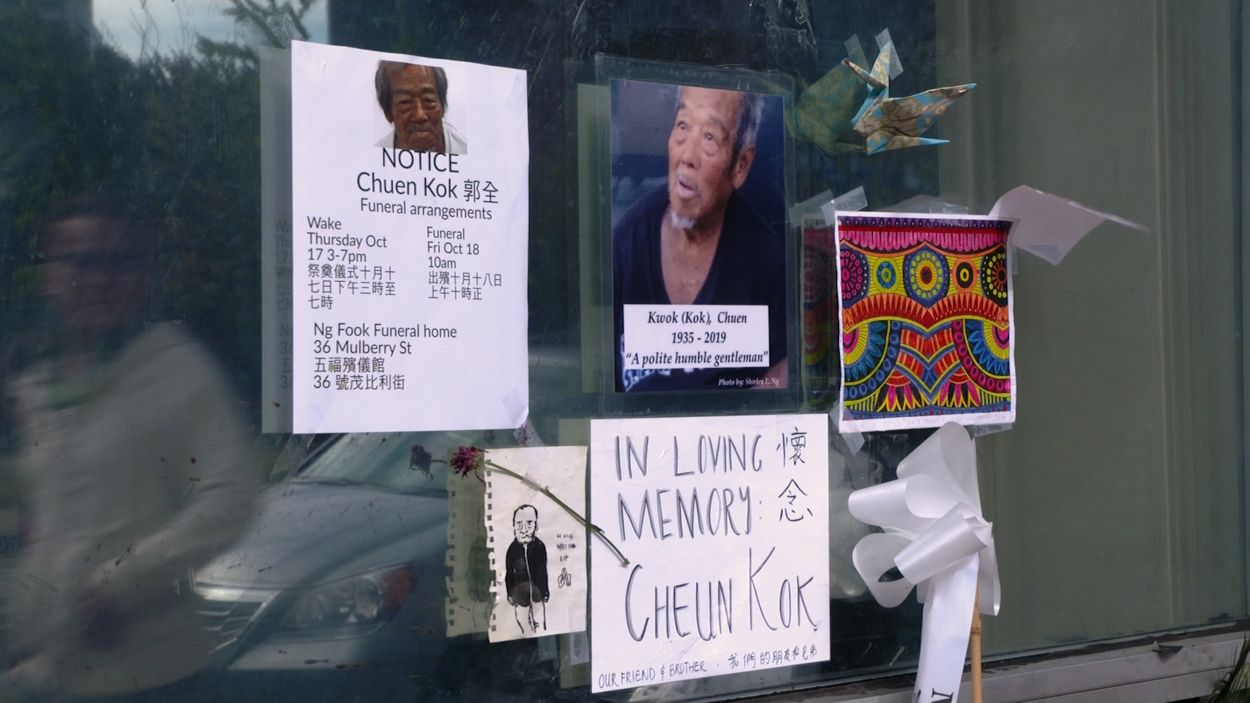 NOTICE
Chuen Kok 郭全
Funeral arrangements
Wake
Thursday Oct
17 3-7pm
祭奠儀式十月十
七日下午三時至
七時
Funeral
Fri Oct 18
10am
出殯十月十八日
上午十時正
Ng Fook Funeral home
36 Mulberry St
五福殯儀館
36 號茂比利街
Kwok (Kok), Chuen
1935 - 2019
"A polite humble gentleman"
Photo by: Shirley L. Ng
IN LOVING 懷
MEMORY: 念
CHEUN KOK
OUR FRIEND & BROTHER · 我們的朋友和兄弟